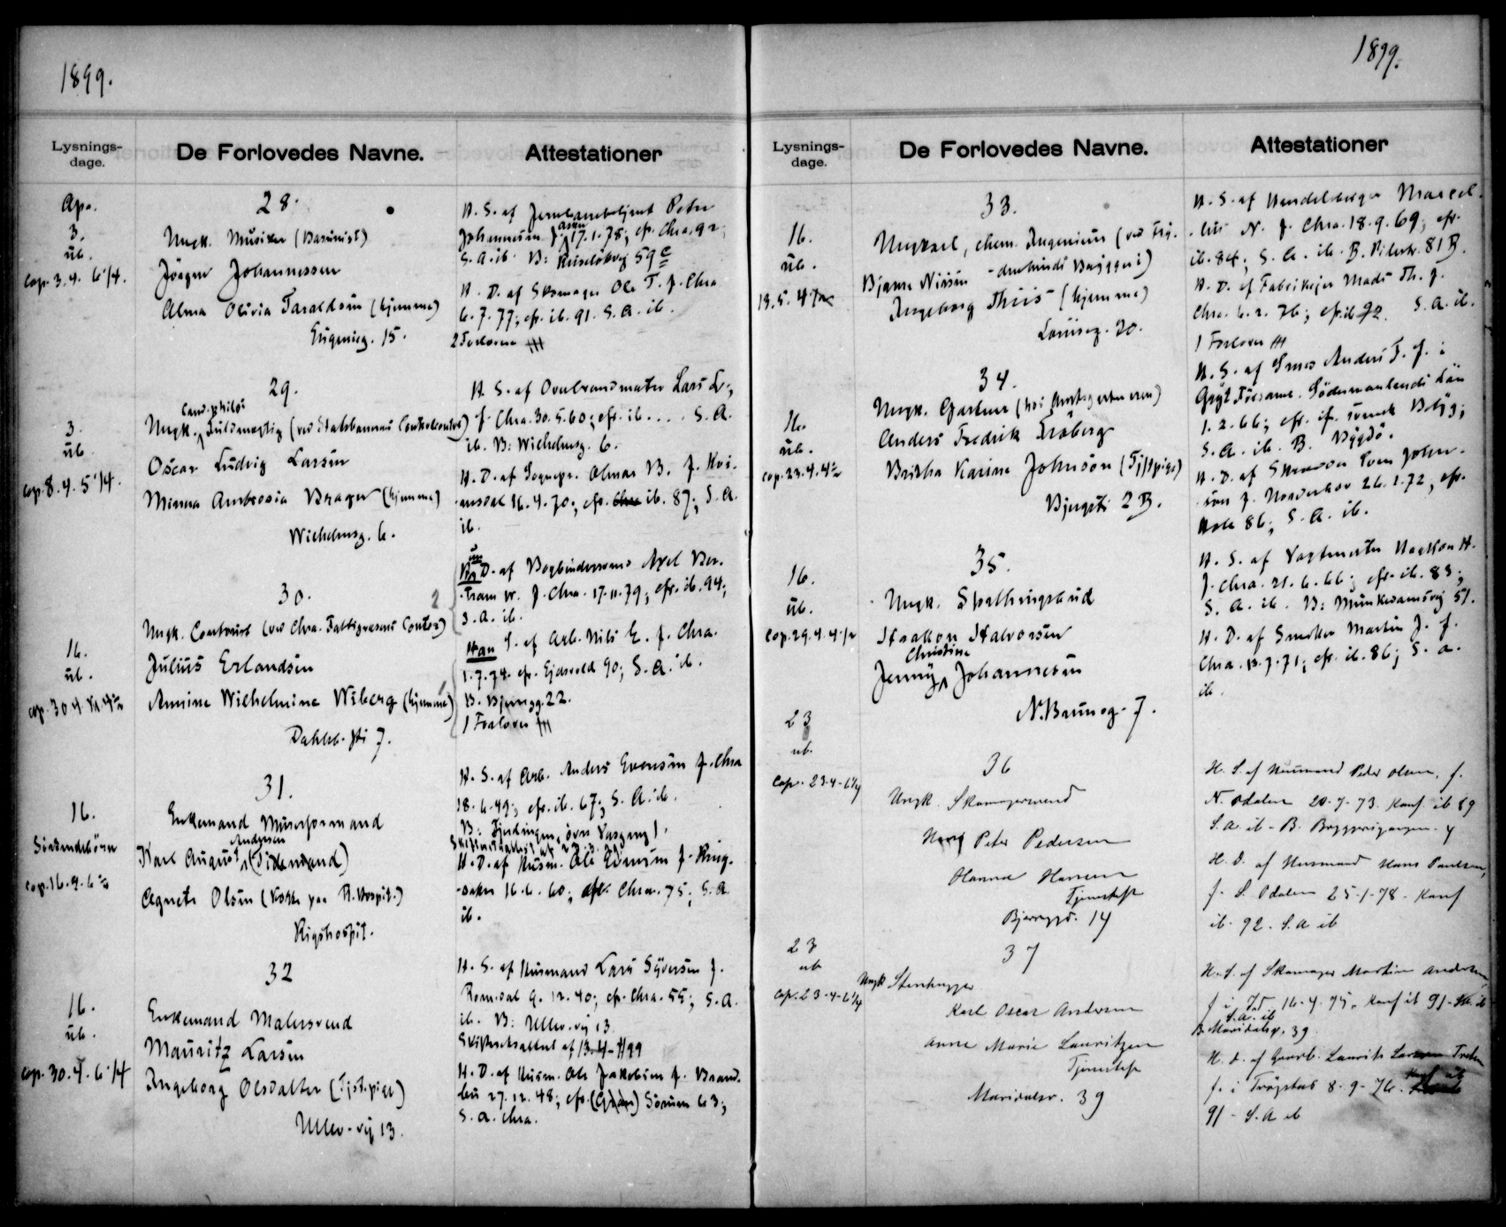 1899.
Lysnings-
dage.
De Forlovedes Navne.
Attestationer
Apr.
3.
üb.
cop. 3. 4. 6 1/4.
28.
Ungk. Müsiker (Basünist)
Jörgen Johannessen
Alma Olivia Taraldsen (hjemme)
Eügenieg. 15.
H. S. af Jernbanebetjent Peter
Johannesen f. 17.1.78; cfr. Chra. 92;
S. a. ib. B: Rüseløkvej 59 c
H. D. af Skomager Ole T. f. Chra
6.7.77; cfr. ib. 91. S. a. ib.
2 Forlovere
3.
üb.
cop. 8. 4. 5 1/4.
29.
Cand. philos
Ungk. Füldmægtig (ved Statsbanernes Controlcontor)
Oscar Lüdvig Larsen
Minna Ambrosia Brager (hjemme)
Wilhelmsg. 6.
H. S. af Overbrandmester Lars L.,
f. Chra. 30.5.60; cfr. ib. ... S. a.
ib. B: Wilhelmsg. 6.
H. D. af Sognepr. Elmar B. f.
16.4.70; cfr. Chra ib. 87; S. a.
ib.
16.
üb.
cop. 30.4
30.
2
Ungk. Contorist (ved Chra. Fattigvæsens Contor)
Jülius Erlandsen
Annine Wilhelmine Wiberg (hjemme)
Dahlsb. sti 7.
Hün D. af Bogbindersvend Axel Ber.
tram W. f. Chra. 17.11.79; cfr. ib. 94;
S. a. ib.
Han S. af Arb. Nils E. f. Chra.
1.7.74. cfr. Ejdsvold 90; S. a. ib.
B. Bjerregg. 22.
1 Forlover
16.
cop. 16.4.6
31.
Enkemand Mürerformand
Andersen
Karl Aügüst
Agnete Olsen (Kokke paa R. Hospit.)
Rigshospit.
H. S. af Arb. Anders Evensen f. Chra
18.6.49; cfr. ib. 67; S. a. ib.
B: Fjerdingen, øvre Vasgang 1.
H. D. af Hüsm. Ole f. Ring-
saker 16.6.60; cfr. Chra. 75; S. a
ib.
16.
üb.
cop. 30.4. 6 1/4
32
Enkemand Malersvend
Maüritz Larsen
Ingeborg Olsdatter (Tjst.pige)
Ullev. vej 13.
H. S. af Hüsmand Lars Syversen f.
Romsdal 9.12.40; cfr. Chra. 55; S. a.
ib. B: Ullev. vej 13.
Skifteretsattest af 13-4-99
H. D. af Hüsm. Ole Jakobsen f. Brand.
bu 27.12.48; cfr. (Gran) Sörum 63;
S. a. Chra.
1899.
Lysnings-
dage.
De Forlovedes Navne.
Attestationer
16.
üb.
33.
Ungkarl, chem. Ingeniør (ved Frydenlunds Bryggeri)
Bjarne Nissen
Ingeborg Thiis (hjemme)
Loüiseg. 20.
H. S. af Handelsborger Marcel-
lius N. f. Chra. 18.9.69; cfr.
ib. 84; S. a. ib. B. Pilestr. 81 B.
H. D. af Fabrikejer Mads Th. f.
Chra. 6.2.76; cfr. ib. 92. S. a. ib.
1 Forlover
16.
üb.
cop. 23.4.
34.
Ungk. Gartner (hos Amtsgartneren)
Anders Fredrik Fröberg
Britha Karine Johnson (Tjstpige)
Bjergsti 2 B.
H. S. af Anders F. f. i
Gryt Församl. Södermanlands Län
1.2.66; cfr.
S. a. ib. B. Bygdö.
H. D. af Sven John-
son f. 26.1.72, cfr.
86; S. a. ib.
16.
üb.
cop. 29.4.
35.
Ungk. Spaltningsbüd
Haakon Halvorsen
Christine
Jenny Johannesen
N. Brünsg. 7.
H. S. af Vagtmester Haakon H.
f. Chra. 21.6.66; cfr. ib. 83;
S. a. ib. B: Münkedamsvej 51.
H. D. af Snedker Martin J. f.
Chra. 13.7.71; cfr. ib. 86; S. a.
ib.
23
ub.
cop. 23-4- 6 1/4
36
Ungk. Skomagersvend
Peter Pedersen
Hanna Hansen
Tjenestep
Bjerregd. 14
H. S. af Husmand Peder Olsen, f.
N. Odalen 20-7-73. Konf ib 89
S. a. ib- B.
H. D. af Husmand Hans Paulsen,
f. S. Odalen 25-1-78. Konf
ib. 92. S. a ib
23
ub
cop. 23-4-6 1/4
37
Ungk Stenhugger
Karl Oscar Andersen
Anne Marie Lauritzen
Tjenestep
Maridalsv. 39
H. S. af Skomager Martin Andersen,
16-4-75. Konf ib 91-
S. a. ib
B. Maridalsv. 39.
H. D. af Gaardb. Laurits
f. i Trøgstad 8-9-76. Konf ib
91- S. a ib